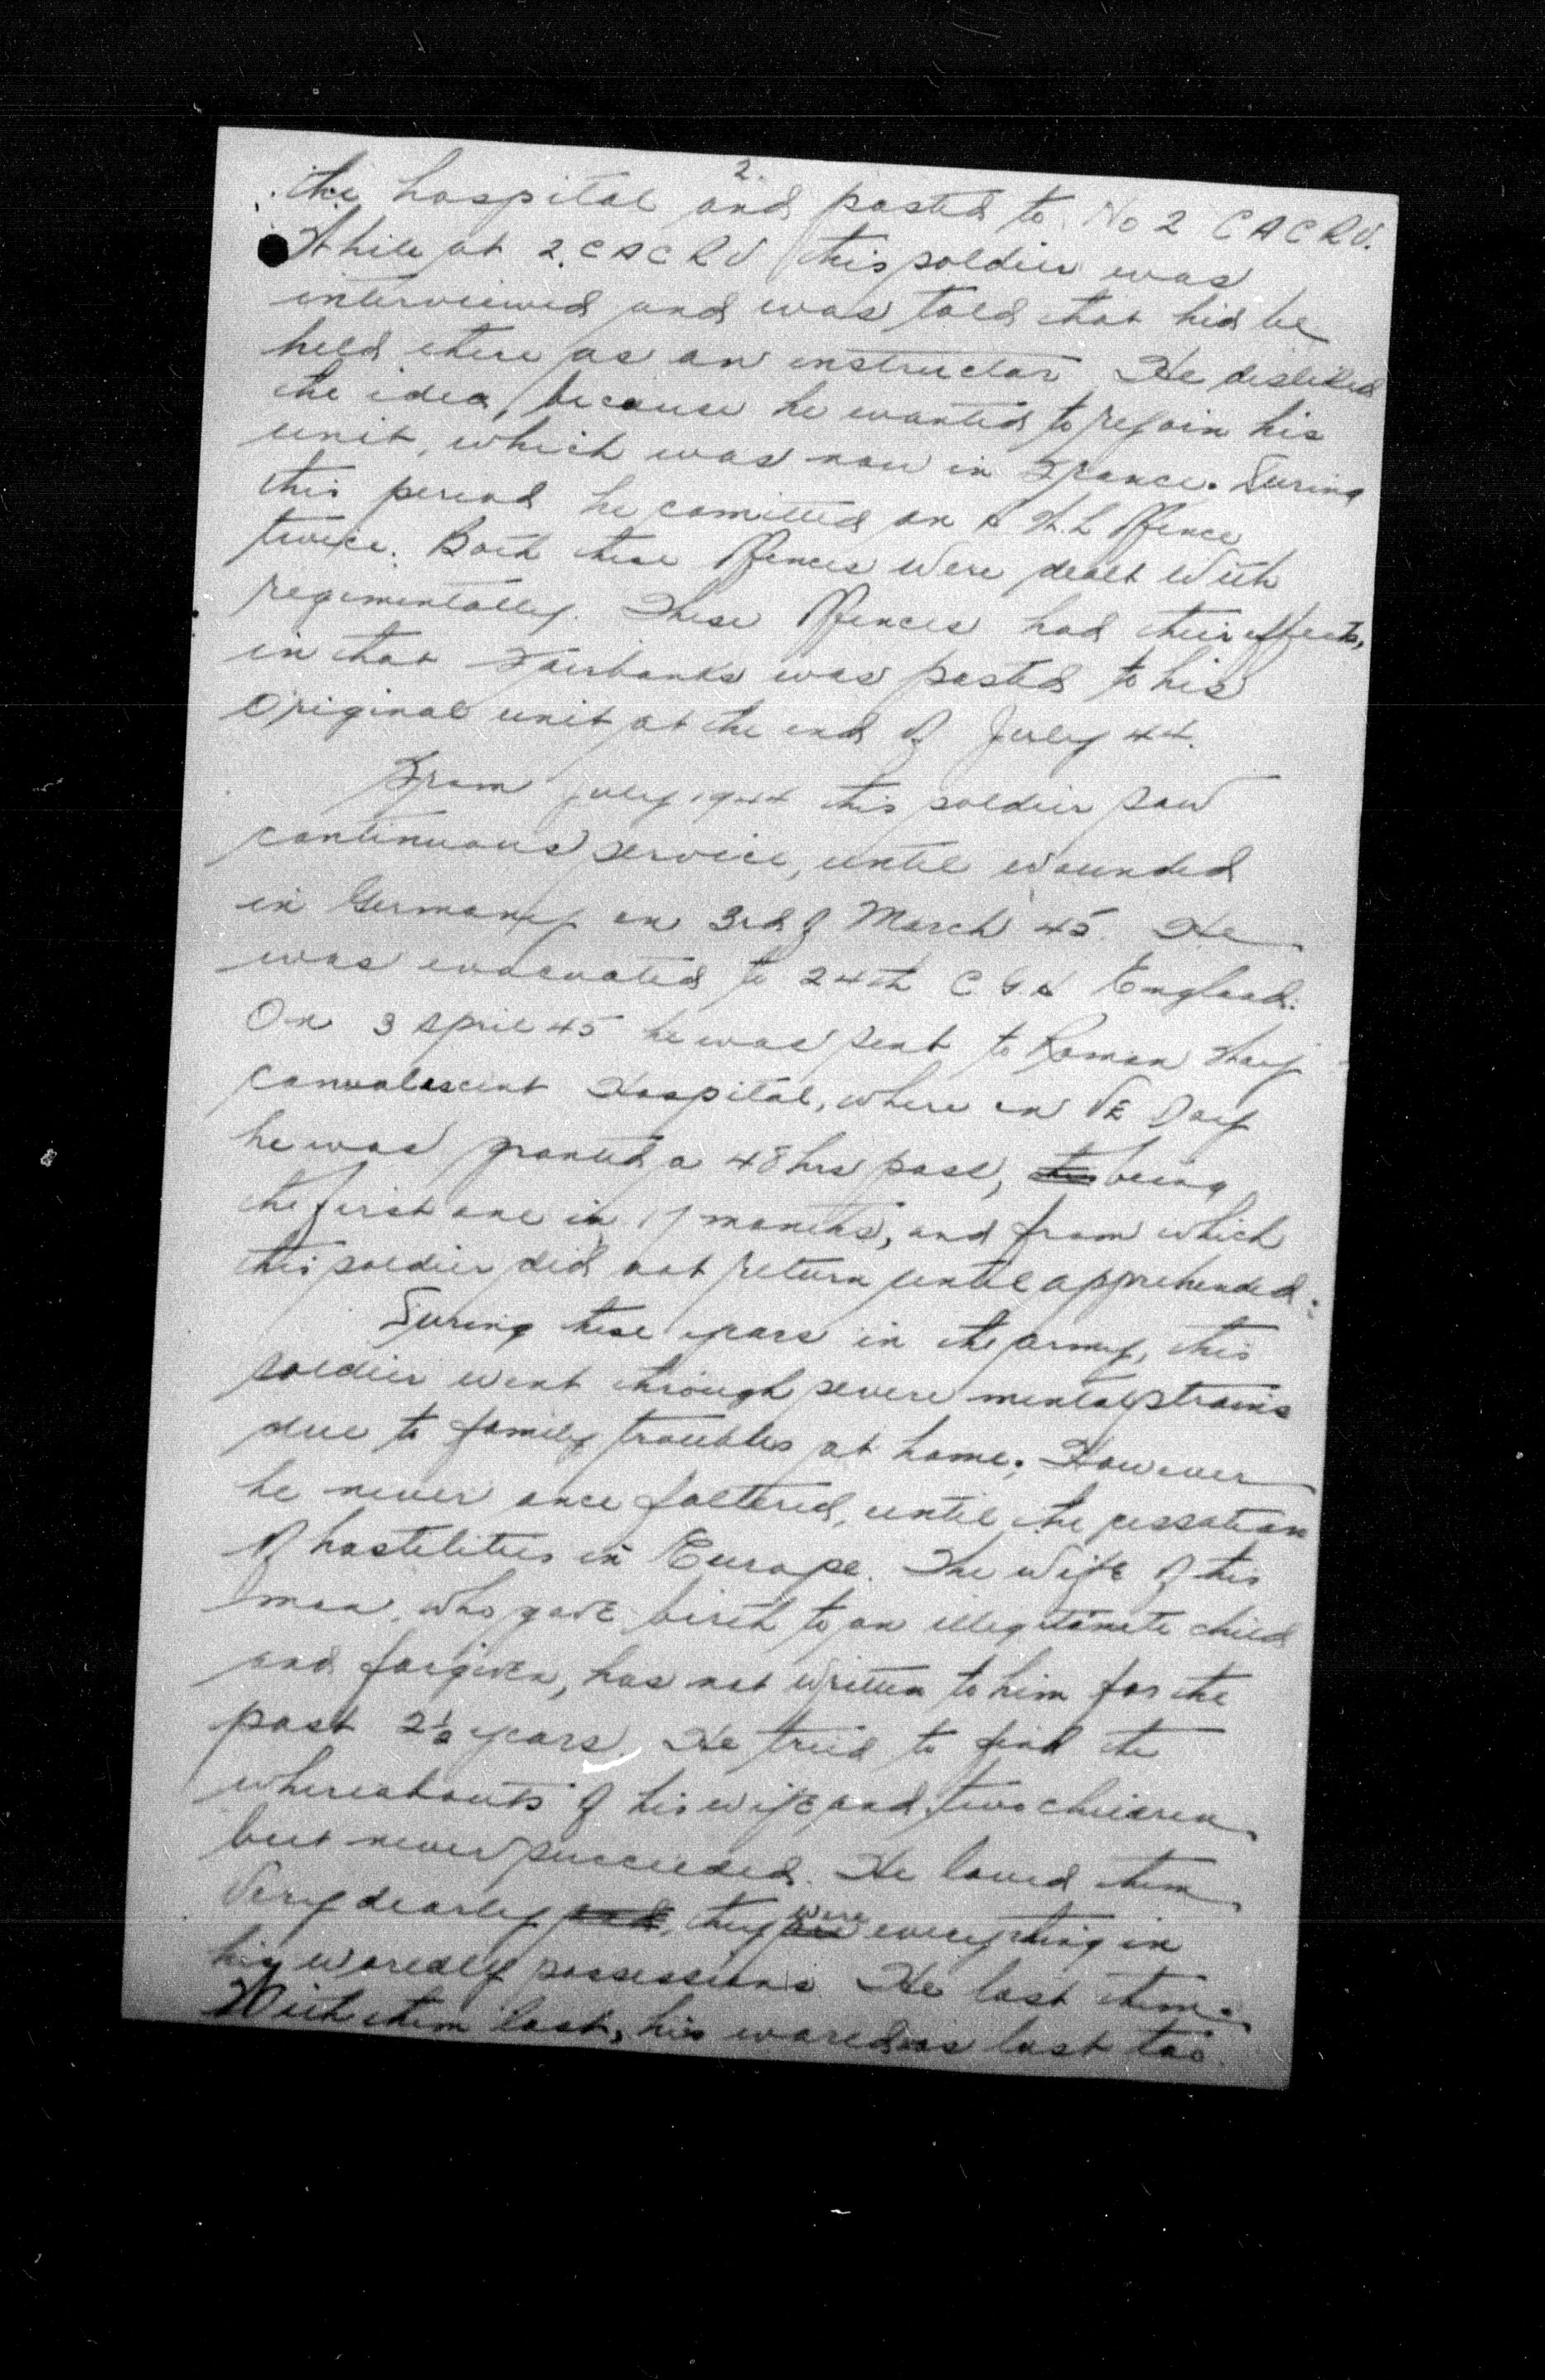 2.
the hospital and posted to No 2 CACRU.
While at 2.CACRU this soldier was
interviewed and was told that hid be
held there as an instructor. He disliked
the idea, because he wanted to rejoin his
unit, which was now in France. During
this period he comitted an A.W.L offence
twice. Both these offences were dealt with
regimentally. These offences had their effects,
in that Fairbanks was posted to his
original unit at the end of July 44.
From July 1944 this soldier saw
continuous service, until wounded
in Germany on 3rd of March 45. He
was evacuated to 24th C G H England.
On 3 April 45 he was sent to Roman Way
convalescent Hospital, where on VE Day
he was granted a 48 hrs pass, being
the first one in 17 months, and from which
this soldier did not return until apprehended.
During these years in the army, this
soldier went through severe mental strains
due to family troubles at home. However
he never once faltered, until the cessation
of hostilities in Europe. The wife of this
man, who gave birth to an illegitimate child
and forgiven, has not written to him for the
past 2½ years. He tried to find the
whereabouts of his wife and two children
but never succeeded. He loved them
very dearly and, they are were everything in
his woredly possessions. He lost them.
With them lost, his wored was lost too.